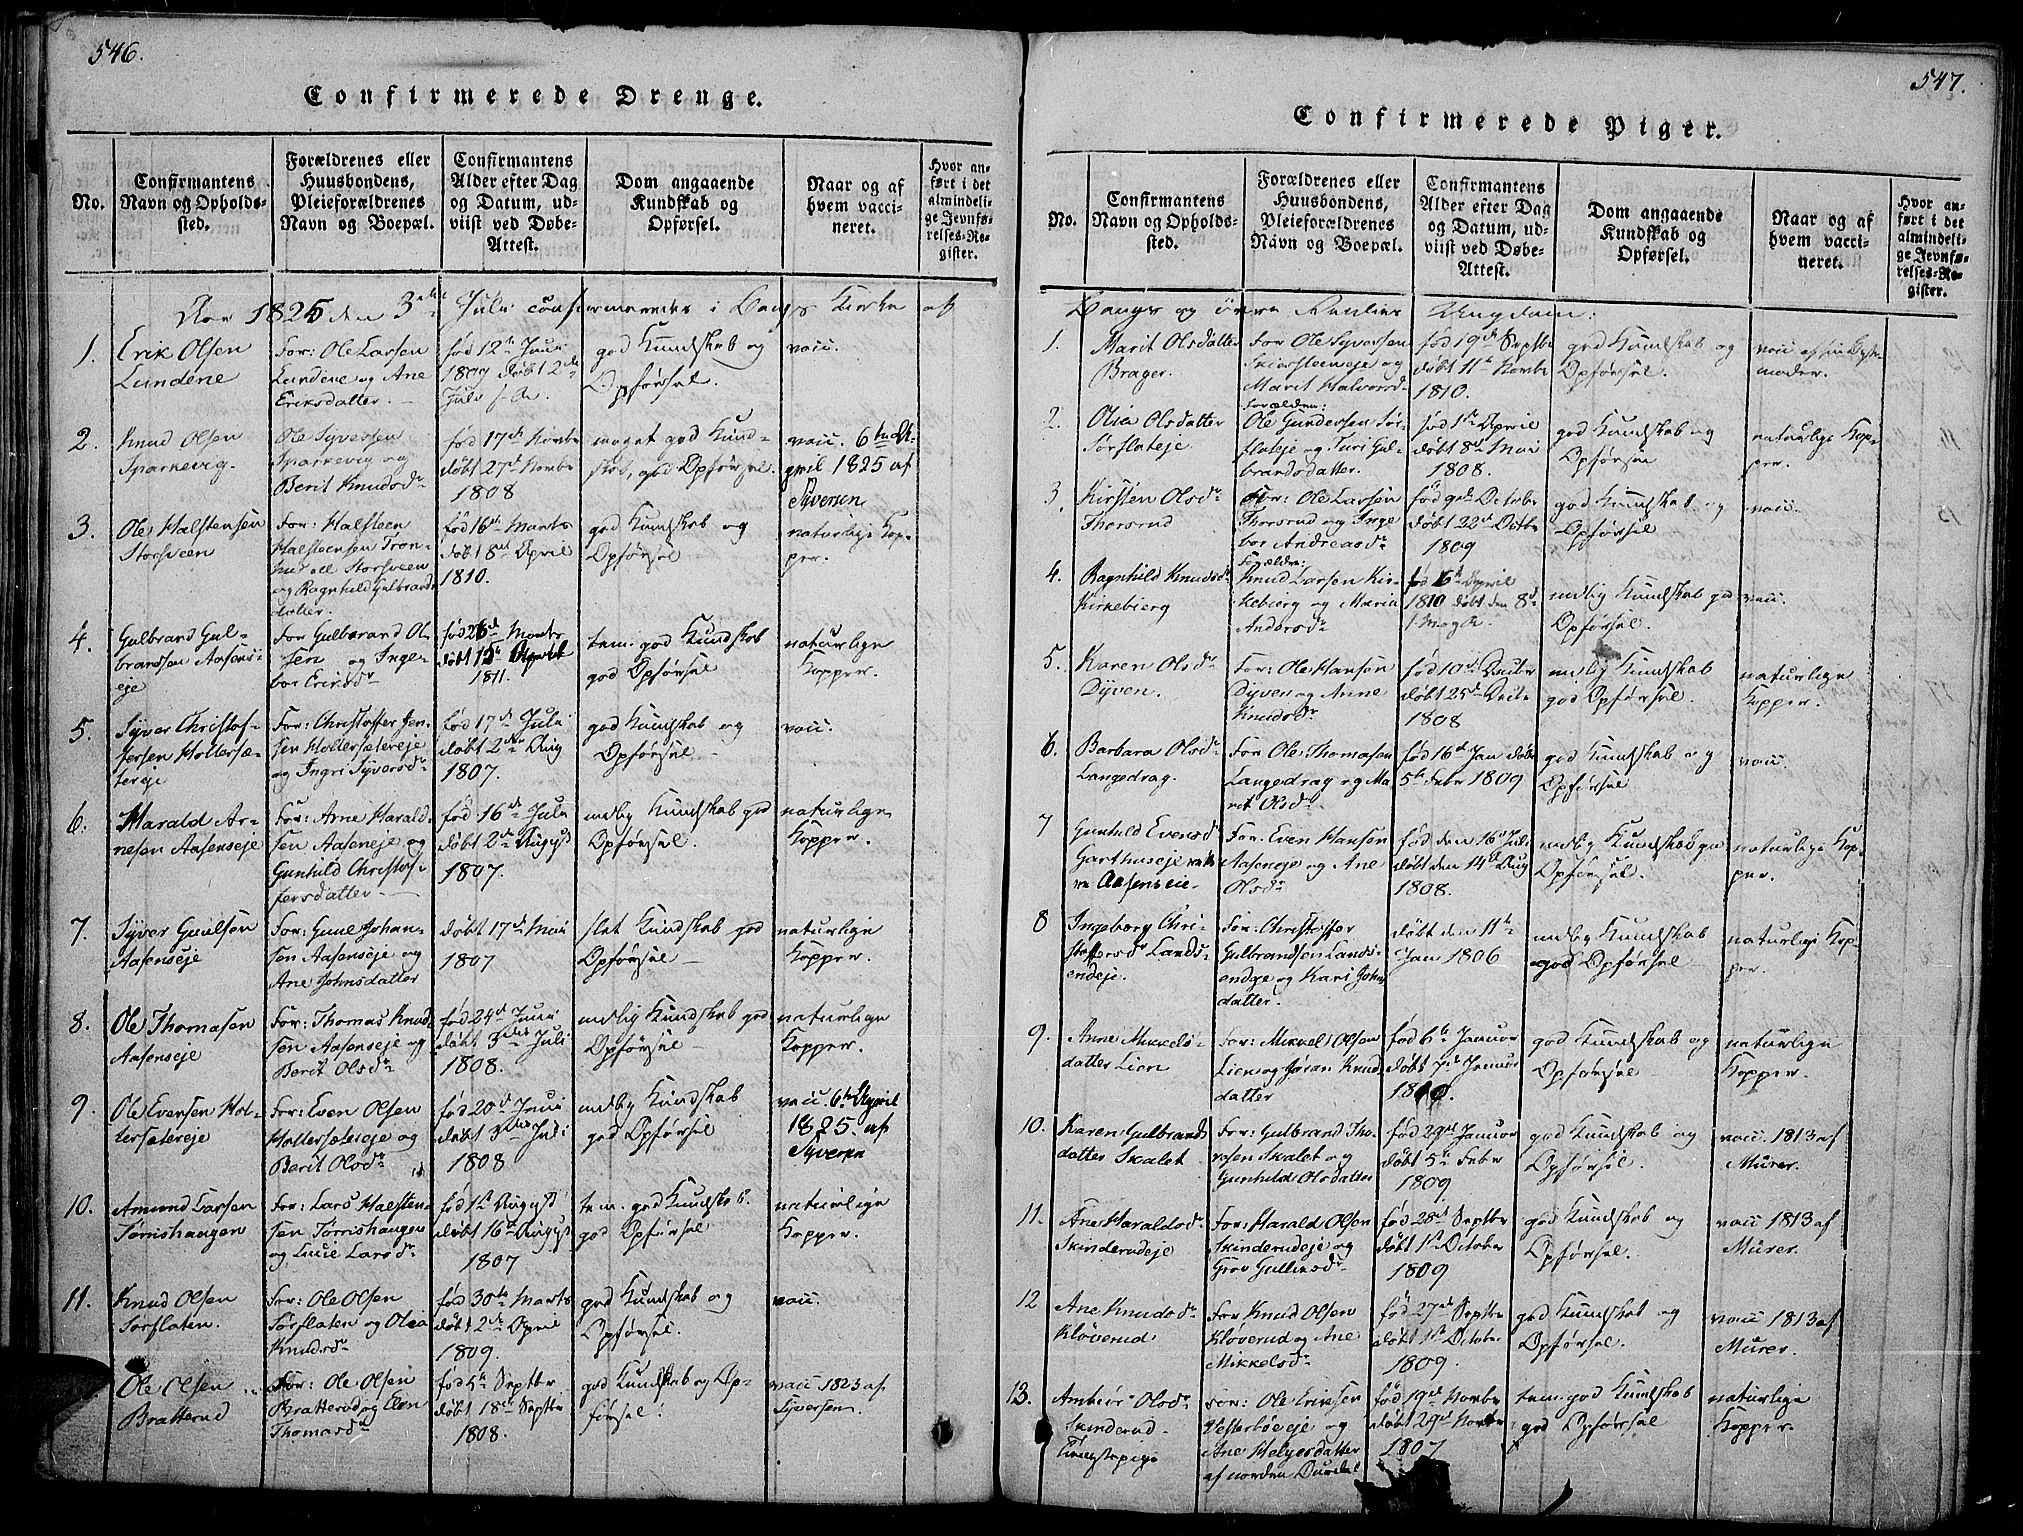 546.
Confirmerede Drenge.
No.
Confirmantens
Navn og Opholds-
sted.
Forældrenes eller
Huusbondens,
Pleieforældrenes
Navn og Boepæl.
Confirmantens
Alder efter Dag
og Datum, ud-
viist ved Døbe-
Attest.
Dom angaaende
Kundskab og
Opførsel.
Naar og af
hvem vacci-
neret.
Hvor an-
ført i det
almindeli-
ge Jevnfø-
relses-Re-
gister.
Aar 1825 den 3die Juli confirmeredes i Bangs Kirke af
1.
Erik Olsen
Lundene
For: Ole Larsen
Lundene og Ane
Eriksdatter.
fød 12te Juni
1809 døbt 2de
Juli s. A.
god Kundskab og
Opførsel.
vacc.
2.
Knud Olsen
Sparkevig.
Ole Syversen
Sparkevig og
Berit Knudsdr
fød 17de Novbr
døbt 27de Novbr
1808
meget god Kund-
skab, god Opførsel.
vacc. 6te A-
pril 1825 af
Syversen
3.
Ole Halstensen
Storsveen
For: Halsteen
Halsteensen Tron-
hus ell Storsveen
og Ragnhild Gulbrands
datter.
fød 16de Marts
døbt 8de April
1810.
god Kundskab og
Opførsel
naturlige Kop-
per.
4.
Gulbrand Gul-
brandsen Aasens-
eje
For Gulbrand Ol-
sen og Inge-
bor Eriksdr
fød 26de Marts
døbt 15de April
1811.
tem. god Kundskab
god Opførsel
naturlige
Kopper.
5.
Syver Christof-
fersen Hollersæ-
tereje
For: Christoffer Jen-
sen Hollersætereje
og Ingri Syversdr
fød 17de Juli
døbt 2den Aug
1807.
god Kundskab og
Opførsel
vacc.
6.
Harald Ar-
nesen Aasenseje
For: Arne Harald-
sen Aasenseje og
Gunhild Christof-
fersdatter
fød 16de Juli
døbt 2de August
1807.
mdlig Kundskab god
Opførsel.
naturlige
Kopper.
7.
Syver Guulsen
Aasenseje
For: Guul Johan-
sen Aasenseje og
Ane Johnsdatter
døbt 17de Mai
1807
slet Kundskab god
Opførsel
naturlige
Kopper.
8.
Ole Thomasen
Aasenseje
For: Thomas Knud-
sen Aasenseje og
Berit Olsdr
fød 24de Juni
døbt 3die Juli
1808.
mdlig Kundskab god
Opførsel
naturlige
Kopper.
9.
Ole Evensen Hol-
lersætereje
For: Even Olsen
Hollersætereje og
Berit Olsdr
fød 20de Juni
døbt 3die Juli
1808
mdlig Kundskab
god Opførsel
vacc. 6te April
1825. af
Syversen
10.
Amund Larsen
Tørrishaugen
For: Lars Halsten-
sen Tørrishaugen
og Lucie Larsdr
fød 1ste August
døbt 16de August
1807
tem. god Kundskab.
god Opførsel
naturlige
Kopper.
11.
Knud Olsen
Sørflaten.
For: Ole Olsen
Sørflaten og Olia
Knudsdr
fød 30te Marts
døbt 2de April
1809.
god Kundskab og
Opførsel.
vacc.
Ole Olsen
Bratterud
For: Ole Olsen
Bratterud og Elen
Thomasdr
fød 5te Septbr
døbt 18de Septbr
1808.
god Kundskab og Op-
førsel.
vacc 1823 af
Syversen.
547.
Confirmerede Piger.
No.
Confirmantens
Navn og Opholds-
sted.
Forældrenes eller
Huusbondens,
Pleieforældrenes
Navn og Boepæl.
Confirmantens
Alder efter Dag
og Datum, ud-
viist ved Døbe-
Attest.
Dom angaaende
Kundskab og
Opførsel.
Naar og af
hvem vacci-
neret.
Hvor an-
ført i det
almindeli-
ge Jevnfø-
relses-Re-
gister.
Bangs og Ungdom:
1.
Marit Olsdatter
Brager.
For Ole Syversen
og
Marit Halvorsd-
fød 19de Septbr
døbt 11te Novbr
1810.
god Kundskab og
Opførsel.
vacc af
moder.
2.
Olia Olsdatter
Sørflateje
Forældre:
Ole Gundersen Sør-
flateje og Turi Gul-
brandsdatter.
fød 1ste April
døbt 8de Mai
1808.
god Kundskab og
Opførsel
naturlige Kop-
per.
3
Kirsten Olsdr
Thorsrud
For: Ole Larsen
Thorsrud og Inge
bor Andreasdr
fød 9de October
døbt 22de Octbr
1809
god Kundskab og
Opførsel
vacc.
4.
Ragnhild Knudsdr
Kirkebierg
Forældre:
Knud Larsen Kir-
kebierg og Maria
Andersdr
fød 6te April
1810 døbt den 8de
god Kundskab god
Opførsel.
vacc.
5.
Karen Olsdr
Dyven.
For: Ole Hansen
Dyven og Anne
Knudsdr
fød 10de Octbr
døbt 25de Octbr
1808
mdlig Kundskab
god Opførsel.
naturlige
Kopper.
6.
Barbara Olsdr
Langedrag.
For Ole Thomasen
Langedrag og Ma
rit Olsdr
fød 16de Jan døbt
5te Febr 1809
god Kundskab og
Opførsel
vacc.
7
Gunhild Evensdr
Garthuseje
Aasenseie
For: Even Hansen
Aasenseje og Ane
Olsdr
fød den 16de Juli
døbt den 14de Aug
1808.
mdlig Kundskab god
Opførsel.
naturlige Kop-
per.
8
Ingeborg Chri-
stoffersdr Lands-
endeje.
For: Christoffer
Gulbrandsen Lands-
endeje og Kari Johns
datter.
døbt den 11te
Jan 1806
mdlig Kundskab
god Opførsel
naturlige Kop-
per.
9.
Anne Mikkels-
datter Lien
For: Mikkel Olsen
Lien og Jøran Knuds
datter
fød 6te Januar
døbt 7de Januar
1810.
god Kundskab og
Opførsel
naturlige
Kopper.
10.
Karen Gulbrands
datter Skalet
For: Gulbrand Tho-
resen Skalet og
Gunhild Olsdatter
fød 29de Januar
døbt 5te Febr
1809
god Kundskab og
Opførsel.
vacc 1813 af
Murer.
11.
Ane Haraldsdr
Skinderudeje
For: Harald Olsen
Skinderudeje og
Grov Gulliksdr
fød 28de Septbr
døbt 1ste October
1809
god Kundskab og
Opførsel.
vacc 1813 af
Murer.
12
Ane Knudsdr
Kløverud
For Knud Olsen
Kløverud og Ane
Mikkelsdr
fød 27de Septbr
døbt 1ste Octobr
1809.
god Kundskab og
Opførsel.
vacc 1813 af
Murer.
13.
Anbiør Olsdr
Skinderud
Tienstepige
For: Ole Eriksen
Vesterbøeje og
Ane Helgesdatter
af nordre Aurdal
fød 19de Novbr
døbt 29de Novbr
1807
tem: god Kundskab
god Opførsel
naturlige
Kopper.